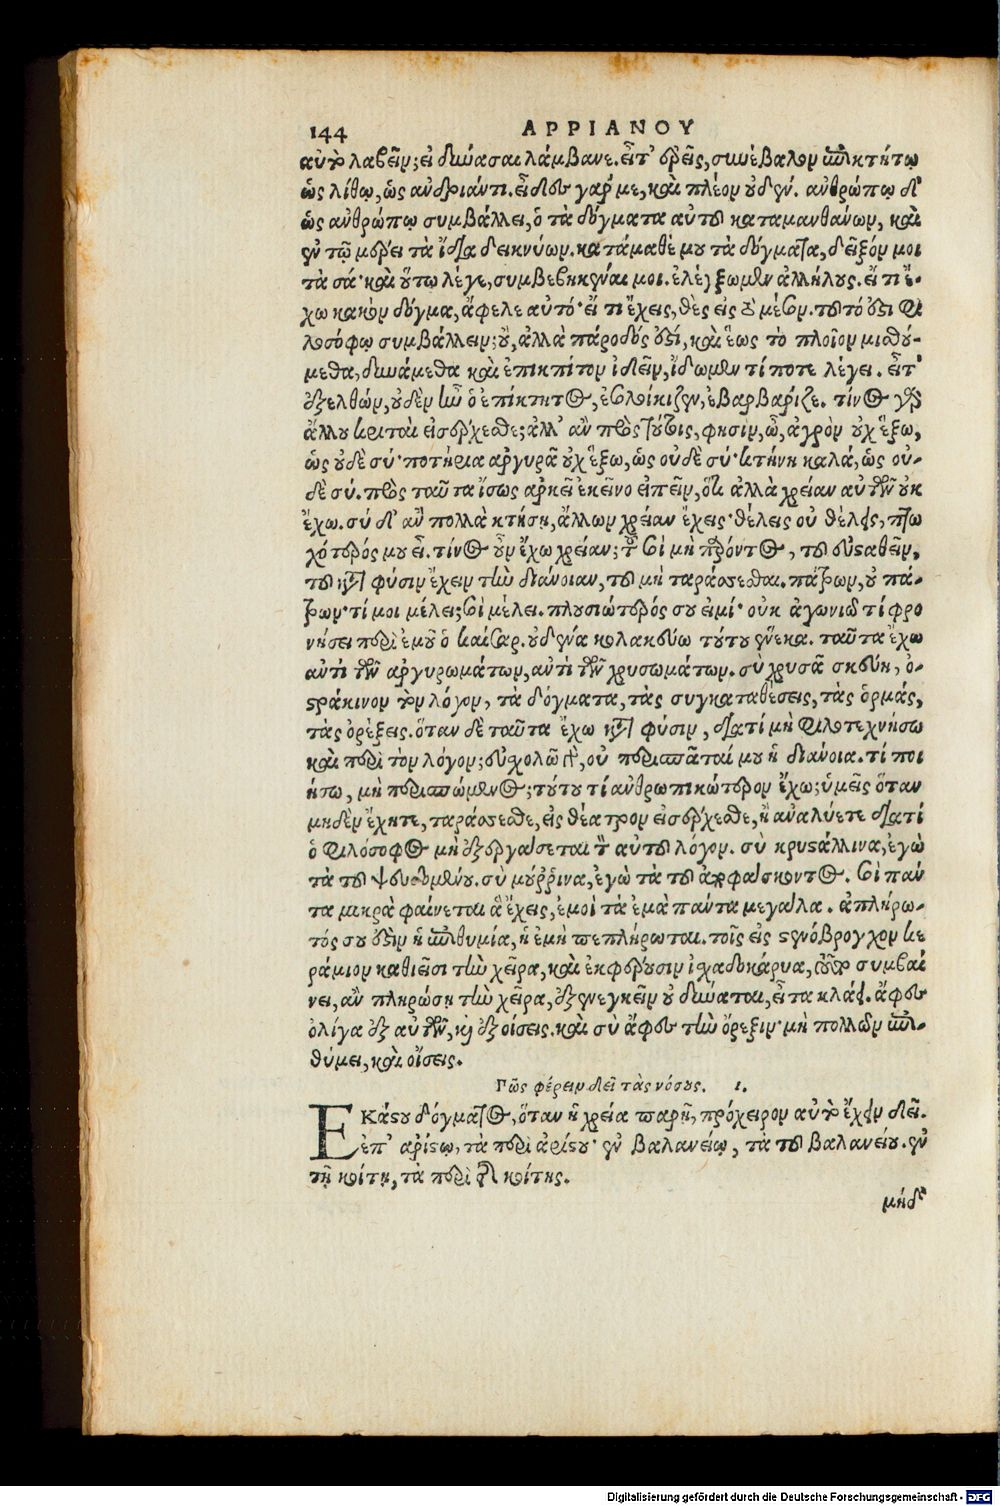 144 ΑΡΡΙΑΝΟΥ
αὐτὸ λαβεῖν; εἰ δύνασαι λάμβανε. εἶτ' ἐρεῖς, συνέβαλον ἐπικτήτῳ
ὡς λίθῳ, ὡς ἀνδριάντι. εἶδε γάρ με, καὶ πλέον οὐδέν. ἀνθρώπῳ δ'
ὡς ἀνθρώπῳ συμβάλλει, ὁ τὰ δόγματα αὐτοῦ καταμανθάνων, καὶ
ἐν τῷ μέρει τὰ ἴδια δεικνύων. κατάμαθέ μου τὰ δόγματα, δεῖξόν μοι
τὰ σά· καὶ οὕτω λέγε, συμβεβηκέναι μοι. ἐλέγξωμεν ἀλλήλους. εἴ τι ἔ-
χω κακὸν δόγμα, ἄφελε αὐτό· εἴ τι ἔχεις, θὲς εἰς τὸ μέσον. τοῦτό ἐστι φι
λοσόφῳ συμβάλλειν; οὔ, ἀλλὰ πάροδός ἐστί, καὶ ἕως τὸ πλοῖον μισθού-
μεθα, δυνάμεθα καὶ ἐπίκτητον ἰδεῖν, ἴδωμεν τί ποτε λέγει. εἶτ'
ἐξελθών, οὐδὲν ἦν ὁ ἐπίκτητος, ἐσολοίκιζεν, ἐβαρβάριζε. τίνος γὰρ
ἄλλου κριταὶ εἰσέρχεσθε; ἀλλ' ἂν πρὸς τούτοις, φησιν, ὦ, ἀγρὸν οὐχ ἕξω,
ὡς οὐδὲ σύ· ποτήρια ἀργυρᾶ οὐχ ἕξω, ὡς οὐδὲ σύ· κτήνη καλά, ὡς οὐ-
δὲ σύ. πρὸς ταῦτα ἴσως ἀρκεῖ ἐκεῖνο εἰπεῖν, ὅτι ἀλλὰ χρείαν αὐτῶν οὐκ
ἔχω. σὺ δ' ἂν πολλὰ κτήσῃ, ἄλλων χρείαν ἔχεις· θέλεις οὐ θέλεις, πτω
χότερός μου εἶ. τίνος οὖν ἔχω χρείαν; τοῦ σοὶ μὴ παρόντος, τοῦ εὐσταθεῖν,
τοῦ κατὰ φύσιν ἔχειν τὴν διάνοιαν, τοῦ μὴ ταράσσεσθαι. πάτρων, οὐ πά-
τρων· τί μοι μέλει; σοὶ μέλει. πλουσιώτερός σου εἰμί· οὐκ ἀγωνιῶ τί φρο
νήσει περὶ ἐμοῦ ὁ καίσαρ. οὐδένα κολακεύω τούτου ἕνεκα. ταῦτα ἔχω
ἀντὶ τῶν ἀργυρωμάτων, ἀντὶ τῶν χρυσωμάτων. σὺ χρυσᾶ σκεύη, ὀ-
στράκινον τὸν λόγον, τὰ δόγματα, τὰς συγκαταθέσεις, τὰς ὁρμάς,
τὰς ὀρέξεις. ὅταν δὲ ταῦτα ἔχω κατὰ φύσιν, διατί μὴ φιλοτεχνήσω
καὶ περὶ τὸν λόγον; εὐσχολῶ γάρ, οὐ περισπᾶταί μου ἡ διάνοια. τί ποι
ήσω, μὴ περισπώμενος; τούτου τί ἀνθρωπικώτερον ἔχω; ὑμεῖς ὅταν
μηδὲν ἔχητε, ταράσσεσθε, εἰς θέατρον εἰσέρχεσθε, ἢ ἀναλύετε διατί
ὁ φιλόσοφος μὴ ἐξεργάσεται τὸν αὐτοῦ λόγον. σὺ κρυστάλλινα, ἐγὼ
τὰ τοῦ ψευδομένου. σὺ μούρρινα, ἐγὼ τὰ τοῦ ἀποφάσκοντος. σοὶ πάν
τα μικρὰ φαίνεται ἃ ἔχεις, ἐμοὶ τὰ ἐμὰ πάντα μεγάλα. ἀπλήρω-
τός σου ἐστὶν ἡ ἐπιθυμία, ἡ ἐμὴ πεπλήρωται. τοῖς εἰς στενόβρογχον κε
ράμιον καθιεῖσι τὴν χεῖρα, καὶ ἐκφέρουσιν ἰσχαδοκάρυα, τοῦτο συμβαί
νει, ἂν πληρώσῃ τὴν χεῖρα, ἐξενεγκεῖν οὐ δύναται, εἶτα κλάει. ἄφες
ὀλίγα ἐξ αὐτῶν, καὶ ἐξοίσεις. καὶ σὺ ἄφες τὴν ὄρεξιν· μὴ πολλῶν ἐπι-
θύμει, καὶ οἴσεις.
Πῶς φέρειν δεῖ τὰς νόσους. ι.
Εκάστου δόγματος, ὅταν ἡ χρεία παρῇ, πρόχειρον αὐτὸ ἔχειν δεῖ.
ἐπ' ἀρίστῳ, τὰ περὶ ἀρίστου· ἐν βαλανείῳ, τὰ τοῦ βαλανείου. ἐν
τῇ κοίτῃ, τὰ περὶ τῆς κοίτης.
μήδ'
Digitalisierung gefördert durch die Deutsche Forschungsgemeinschaft - DFG